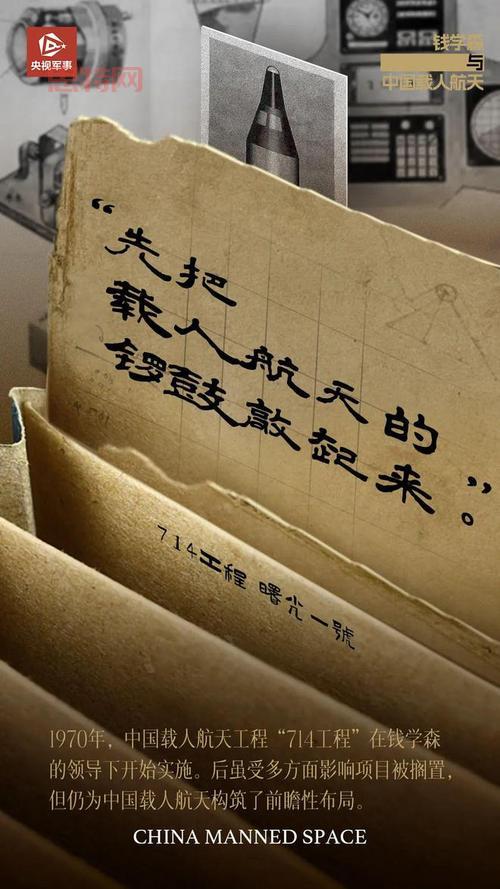 央视军事
钱学森
与
中国载人航天
“先把
载人航天的
锣鼓敲起来。”
714工程 曙光一號
1970年，中国载人航天工程“714工程”在钱学森
的领导下开始实施。后虽受多方面影响项目被搁置，
但仍为中国载人航天构筑了前瞻性布局。
CHINA MANNED SPACE